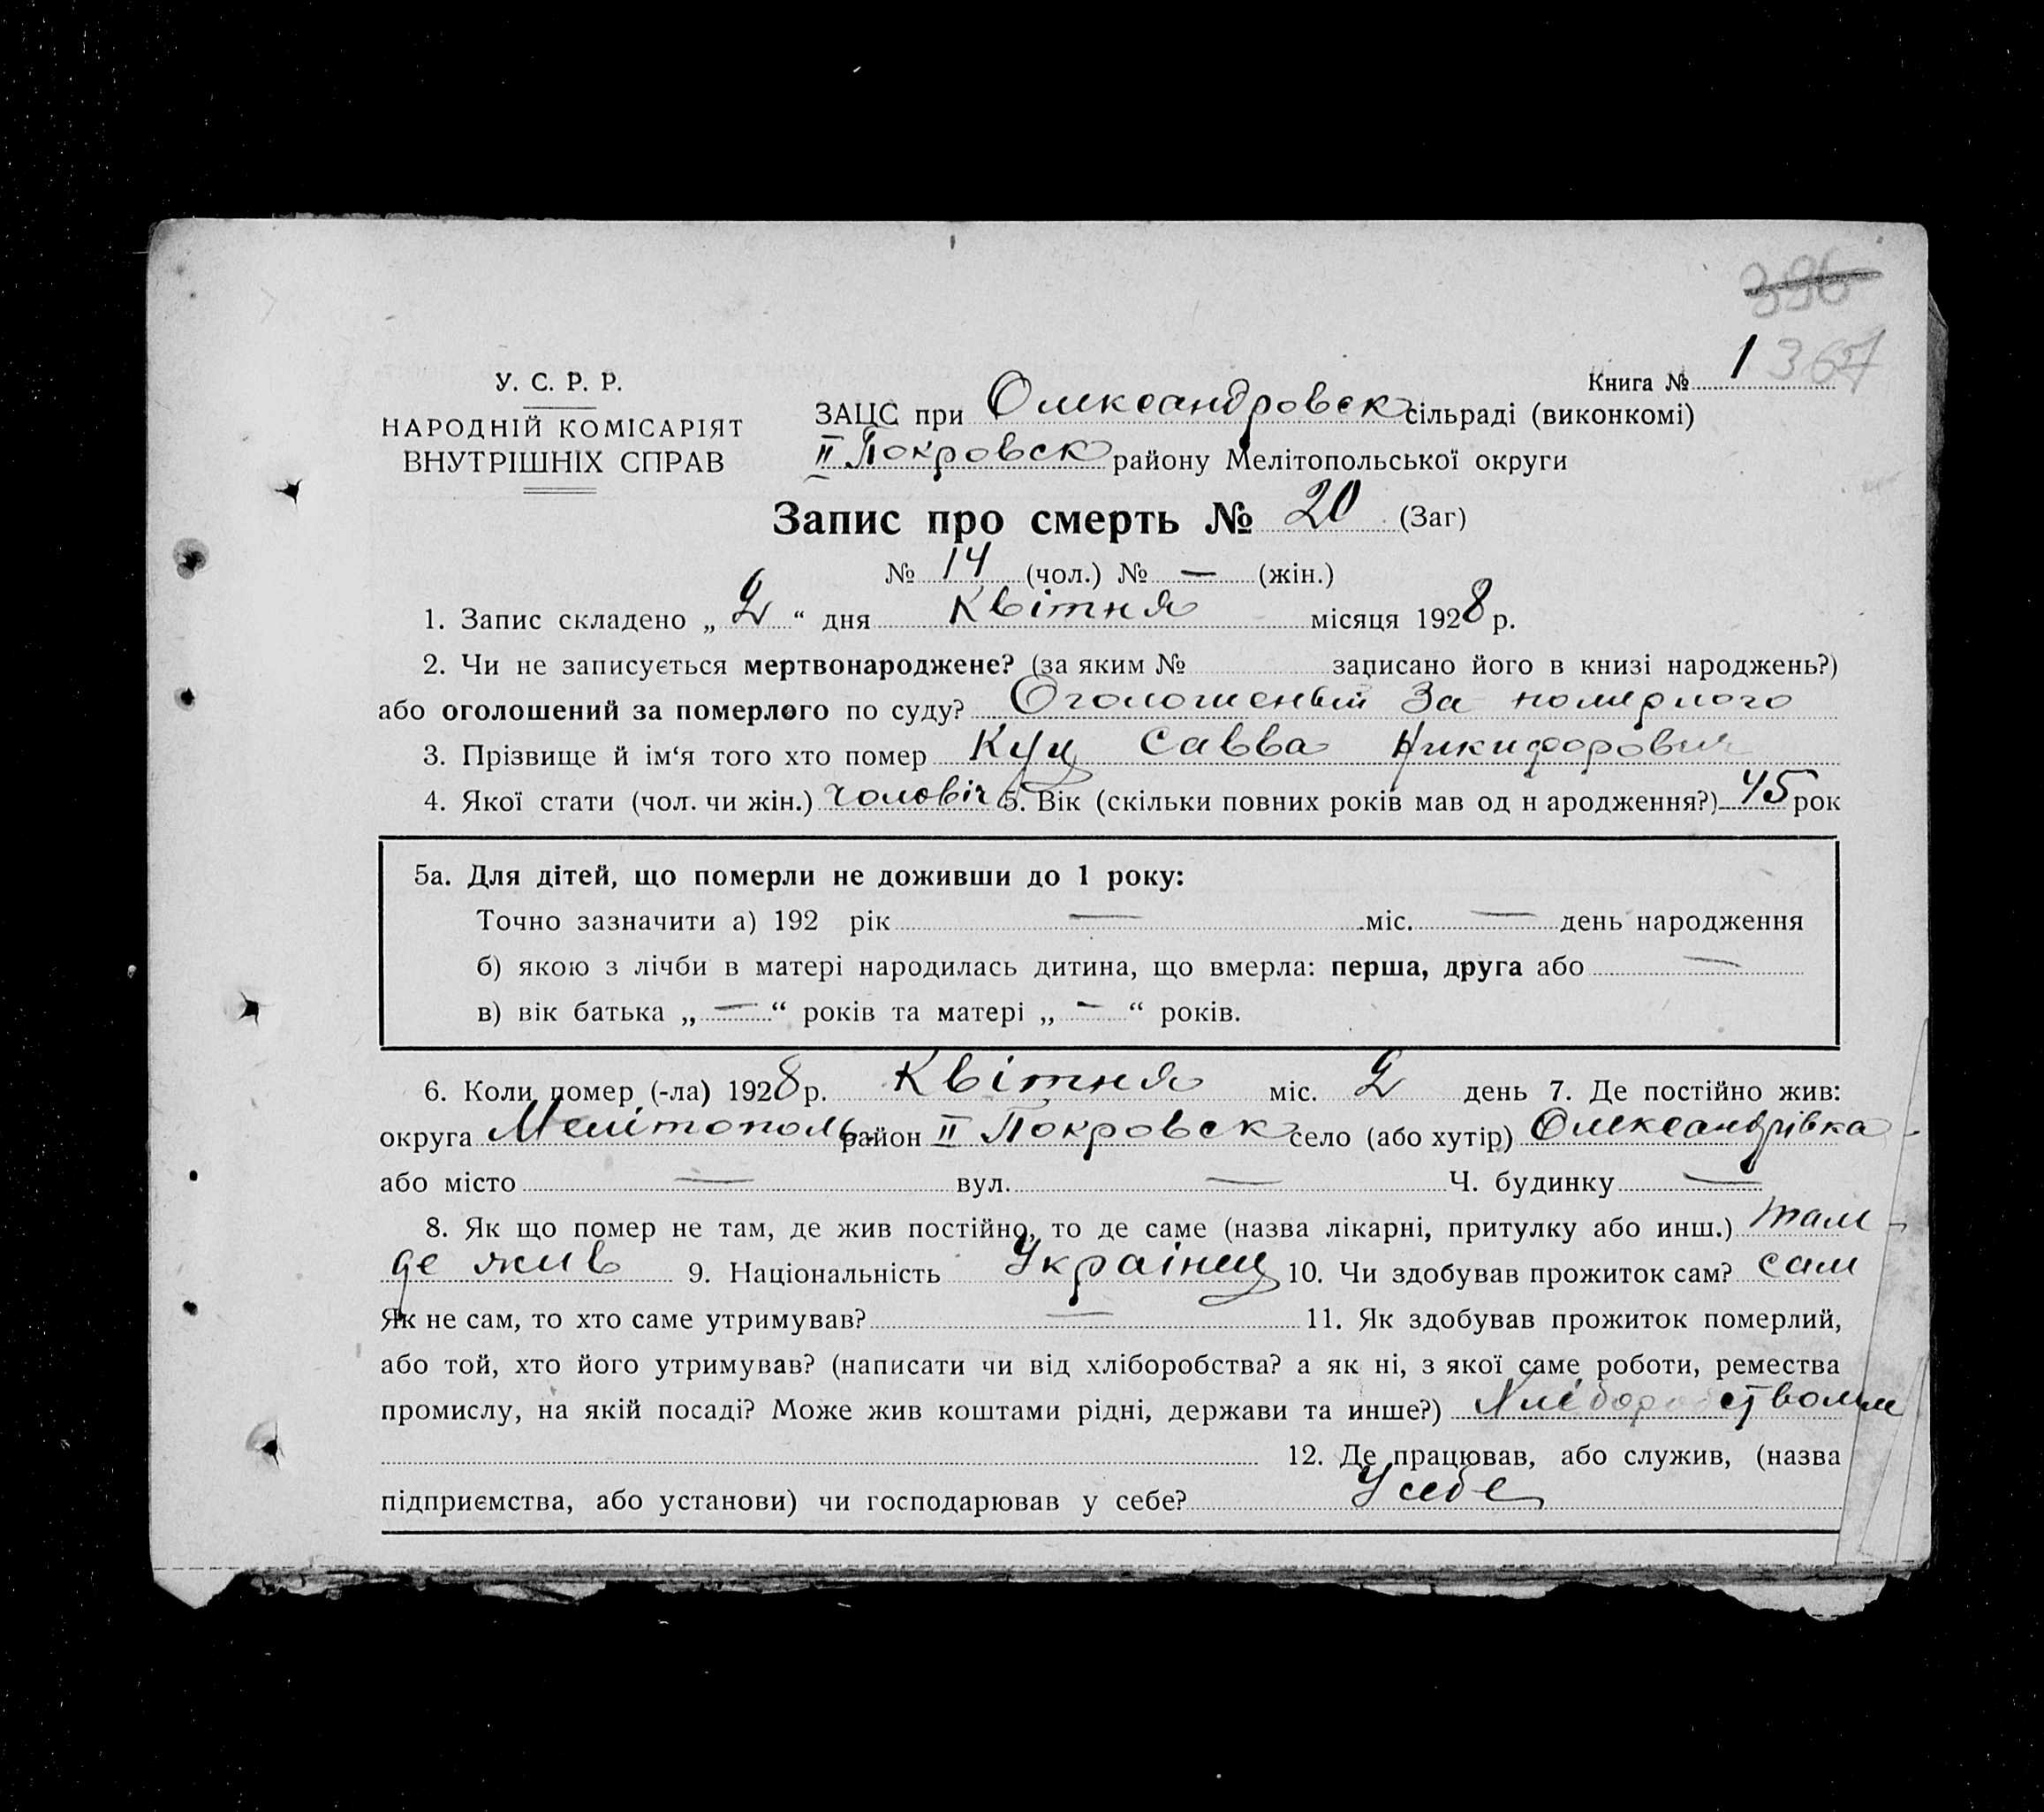 396
Книга № 1 367
У. С. Р. Р.
НАРОДНІЙ КОМІСАРІЯТ
ВНУТРІШНІХ СПРАВ
ЗАЦС при Олександровск сільраді (виконкомі)
ІІ Покровск району Мелітопольської округи
Запис про смерть № 20 (Заг)
№ 14 (чол.) № — (жін.)
1. Запис складено „ 2 “ дня Квітня місяця 1928 р.
2. Чи не записується мертвонароджене? (за яким № записано його в книзі народжень?)
або оголошений за померлого по суду? Оголошений За померлого
3. Прізвище й ім‘я того хто помер Куц Савва Никифорович
4. Якої стати (чол. чи жін.) чоловіч 5. Вік (скільки повних років мав од н ародження?) 45 рок
5а. Для дітей, що померли не доживши до 1 року:
Точно зазначити а) 192 рік — міс. — день народження
б) якою з лічби в матері народилась дитина, що вмерла: перша, друга або —
в) вік батька „ — “ років та матері „ — “ років.
6. Коли помер (-ла) 1928 р. Квітня міс. 2 день 7. Де постійно жив:
округа Мелітополь район ІІ Покровск село (або хутір) Олександрівка
або місто — вул. — Ч. будинку —
8. Як що помер не там, де жив постійно, то де саме (назва лікарні, притулку або инш.) там
де жив 9. Національність Українец 10. Чи здобував прожиток сам? сам
Як не сам, то хто саме утримував? — 11. Як здобував прожиток померлий,
або той, хто його утримував? (написати чи від хліборобства? а як ні, з якої саме роботи, ремества
промислу, на якій посаді? Може жив коштами рідні, держави та инше?) Хліборобством
12. Де працював, або служив, (назва
підприємства, або установи) чи господарював у себе? У себе